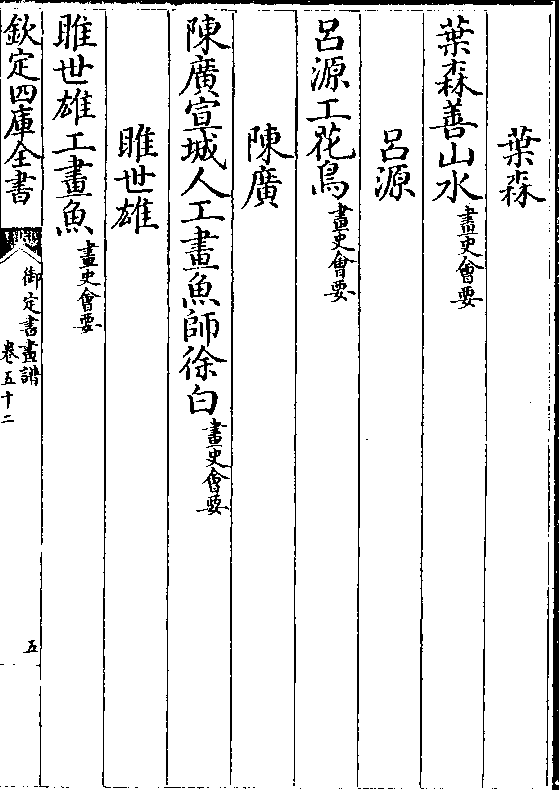 葉森
葉森善山水畫史會要
呂源
呂源工花鳥畫史會要
陳廣
陳廣宣城人工畫魚師徐白畫史會要
睢世雄
睢世雄工畫魚畫史會要
欽定四庫全書
御定書畫譜
卷五十二
五